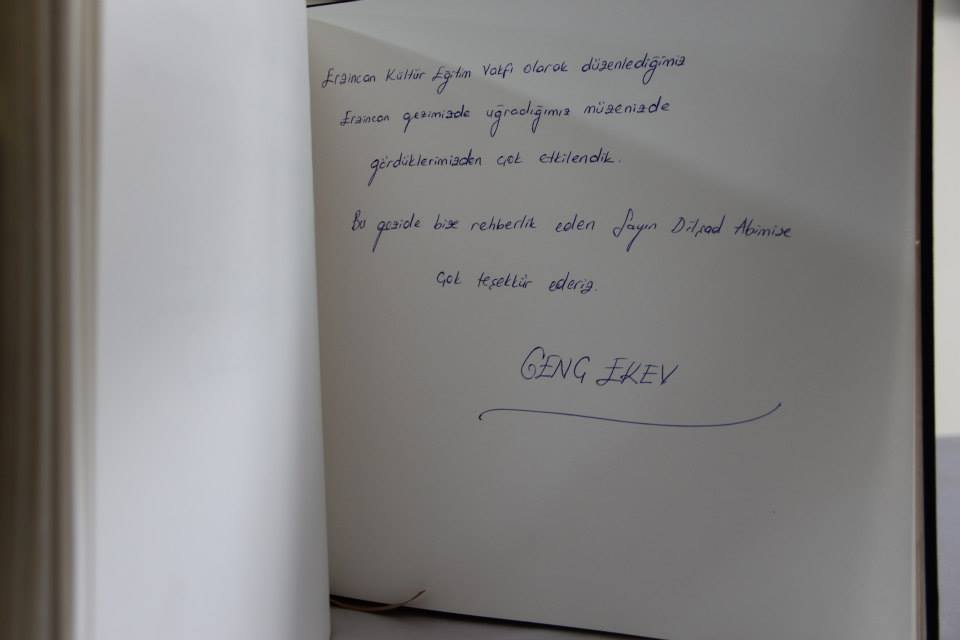 Erzincan Kültür Eğitim Vakfı olarak düzenlediğimiz
Erzincan gezimizde uğradığımız müzenizde
gördüklerimizden çok etkilendik.
Bu gezide bize rehberlik eden Sayın Dilşad Abimize
çok teşekkür ederiz.
GENÇ EKEV